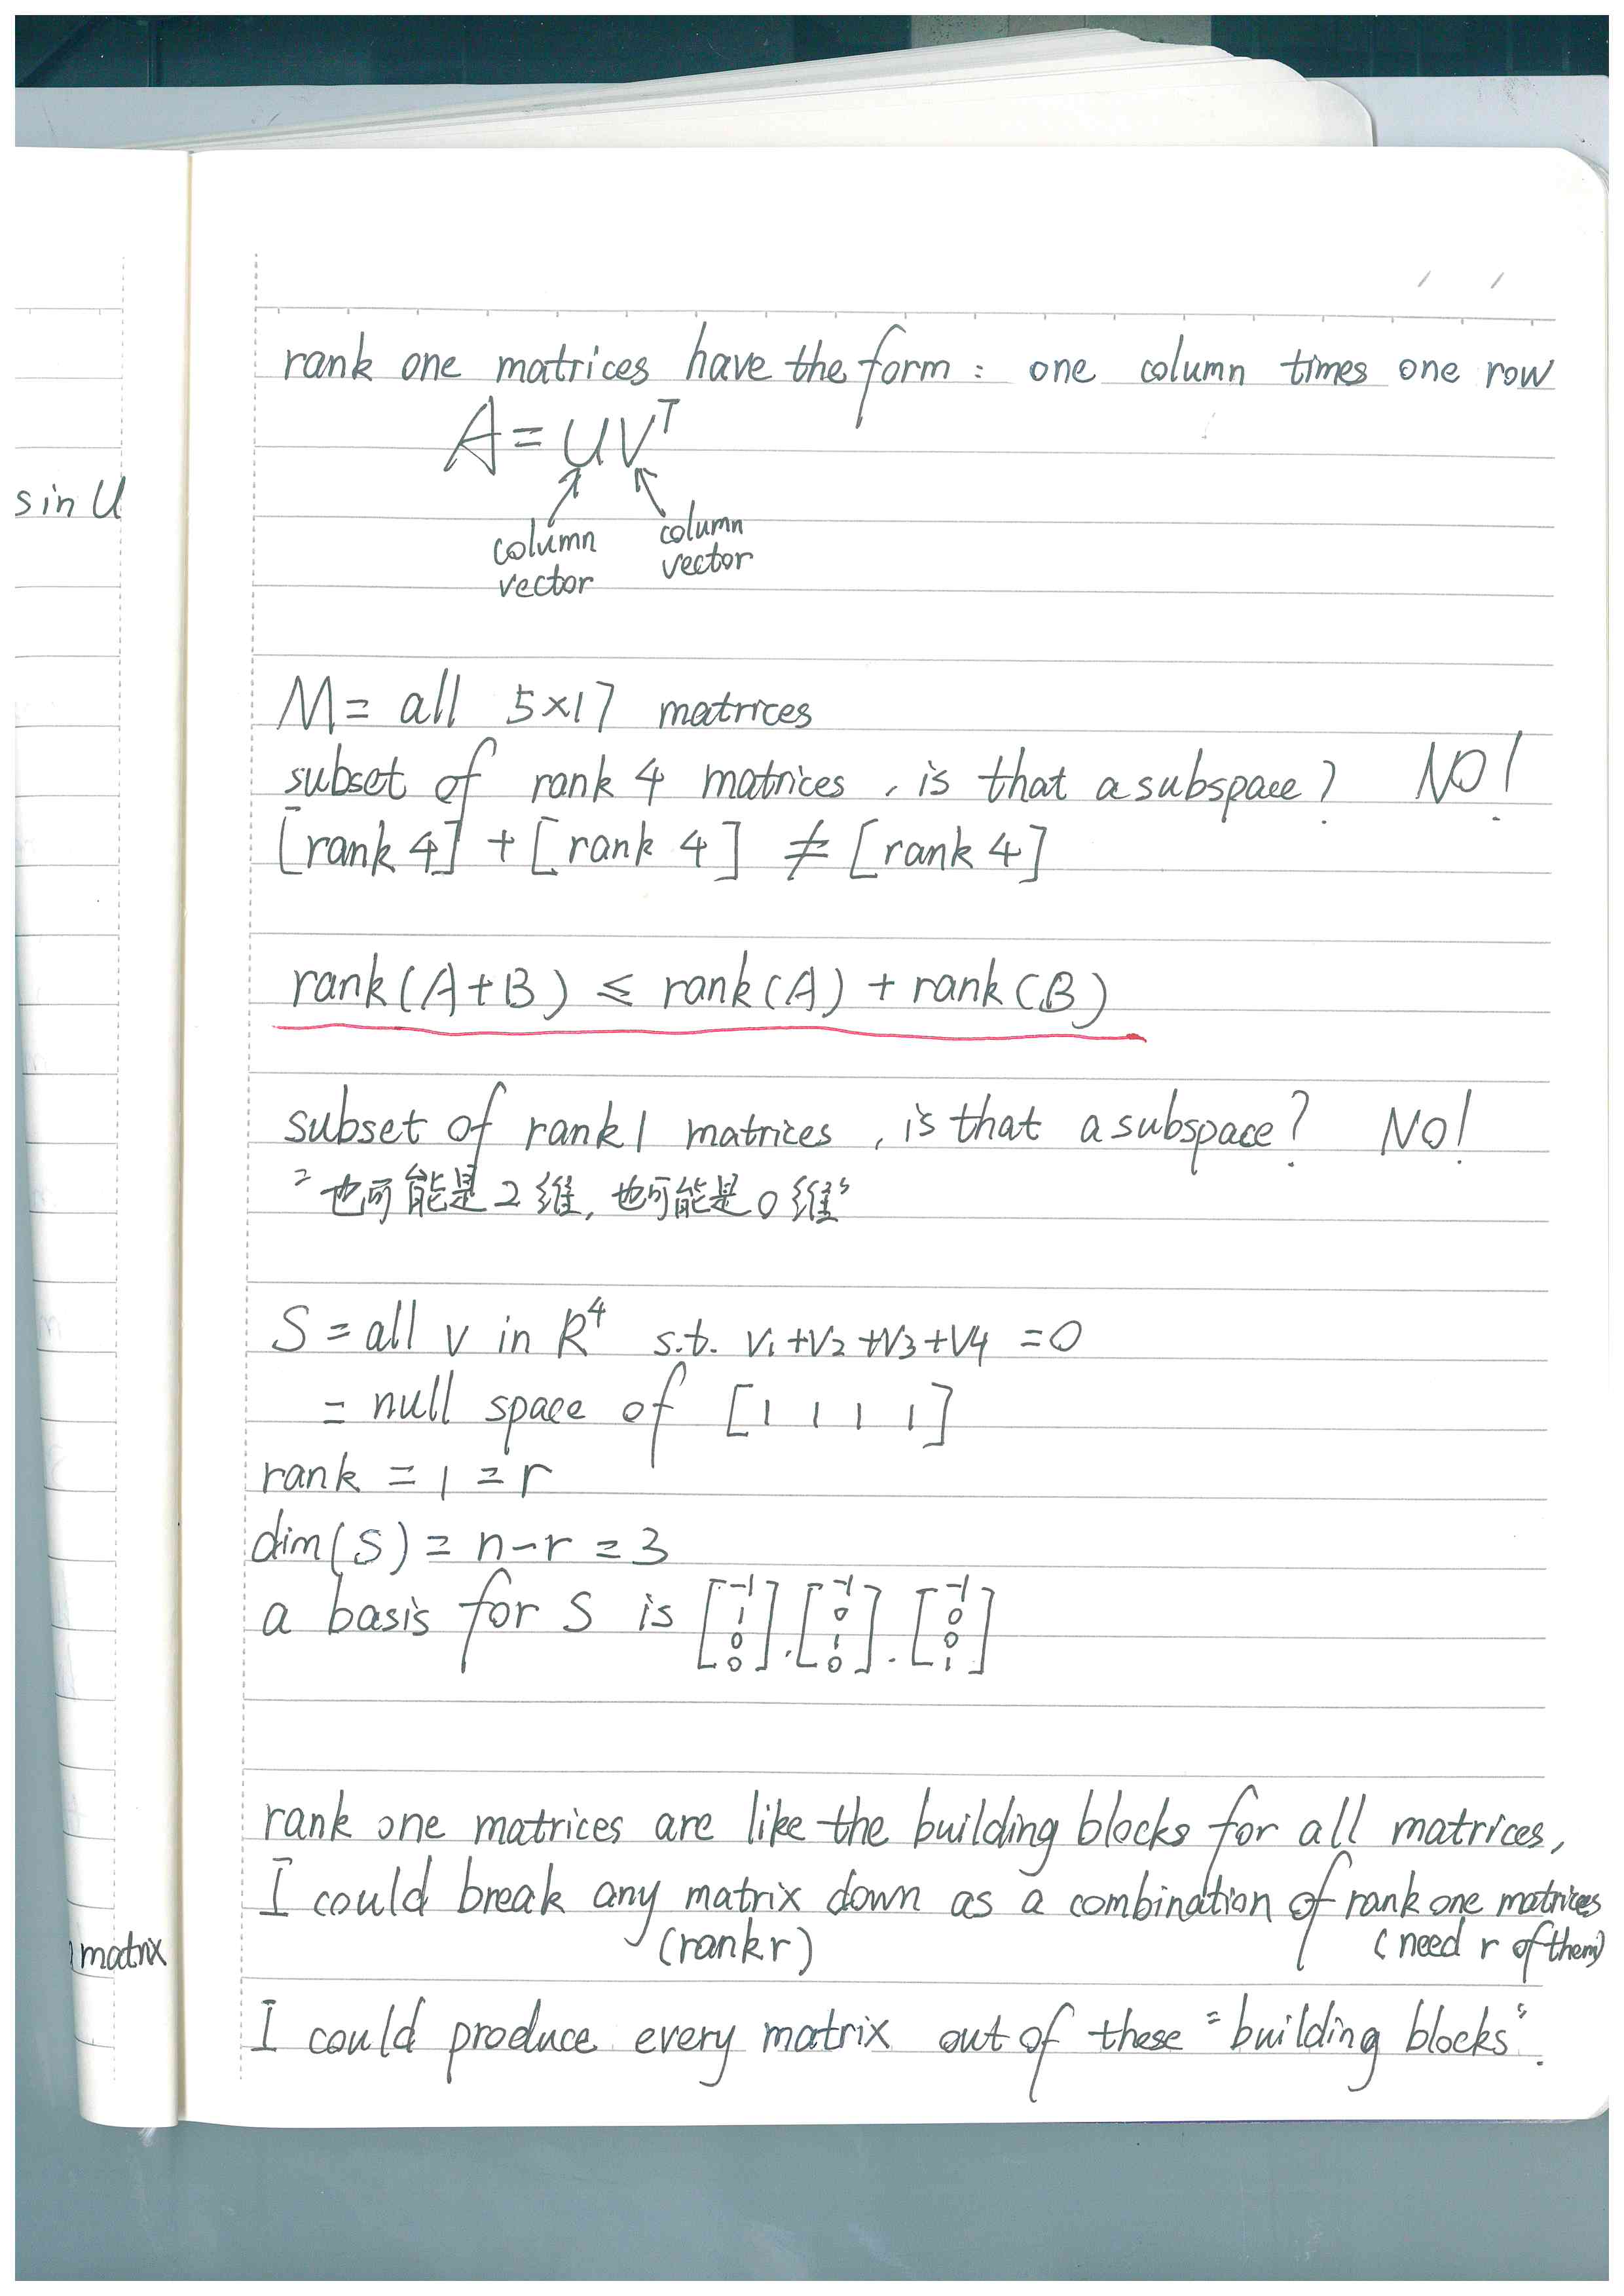 rank one matrices have the form : one column times one row
A = UV^T
column vector
column vector
sin U
M = all 5×17 matrices
subset of rank 4 matrices , is that a subspace ? NO!
[rank 4] + [rank 4] ≠ [rank 4]
rank(A+B) ≤ rank(A) + rank(B)
subset of rank 1 matrices , is that a subspace ? NO!
"也可能是2维, 也可能是0维"
S = all v in R^4 s.t. v1+v2+v3+v4 = 0
= null space of [1 1 1 1]
rank = 1 = r
dim(S) = n-r = 3
a basis for S is [-1 1 0 0], [-1 0 1 0], [-1 0 0 1]
rank one matrices are like the building blocks for all matrices,
I could break any matrix down as a combination of rank one matrices
(rank r) (need r of them)
matrix
I could produce every matrix out of these "building blocks".